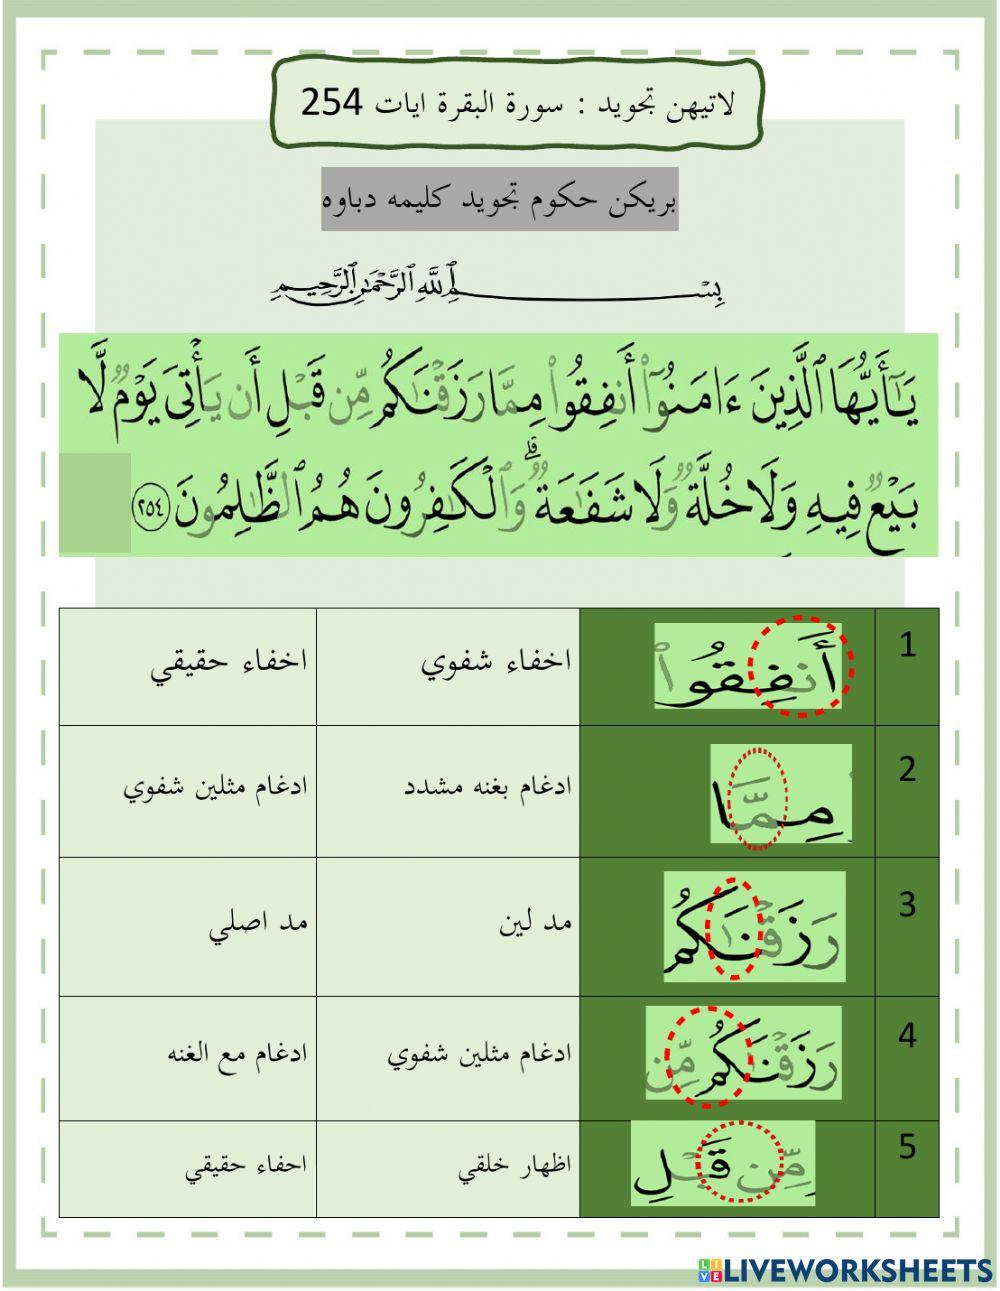 لاتيهن تجويد : سورة البقرة ايات 254
بريكن حكوم تجويد كليمه دباوه
بِسْمِ ٱللَّهِ ٱلرَّحْمَٰنِ ٱلرَّحِيمِ
يَٰٓأَيُّهَا ٱلَّذِينَ ءَامَنُوٓا۟ أَنفِقُوا۟ مِمَّا رَزَقْنَٰكُم مِّن قَبْلِ أَن يَأْتِىَ يَوْمٌ لَّا
بَيْعٌ فِيهِ وَلَا خُلَّةٌ وَلَا شَفَٰعَةٌ ۗ وَٱلْكَٰفِرُونَ هُمُ ٱلظَّٰلِمُونَ ٢٥٤
1 أَنفِقُوا۟ اخفاء شفوي اخفاء حقيقي
2 مِمَّا ادغام بغنه مشدد ادغام مثلين شفوي
3 رَزَقْنَٰكُم مد لين مد اصلي
4 رَزَقْنَٰكُم مِّن ادغام مثلين شفوي ادغام مع الغنه
5 مِّن قَبْلِ اظهار خلقي احفاء حقيقي
LIVEWORKSHEETS